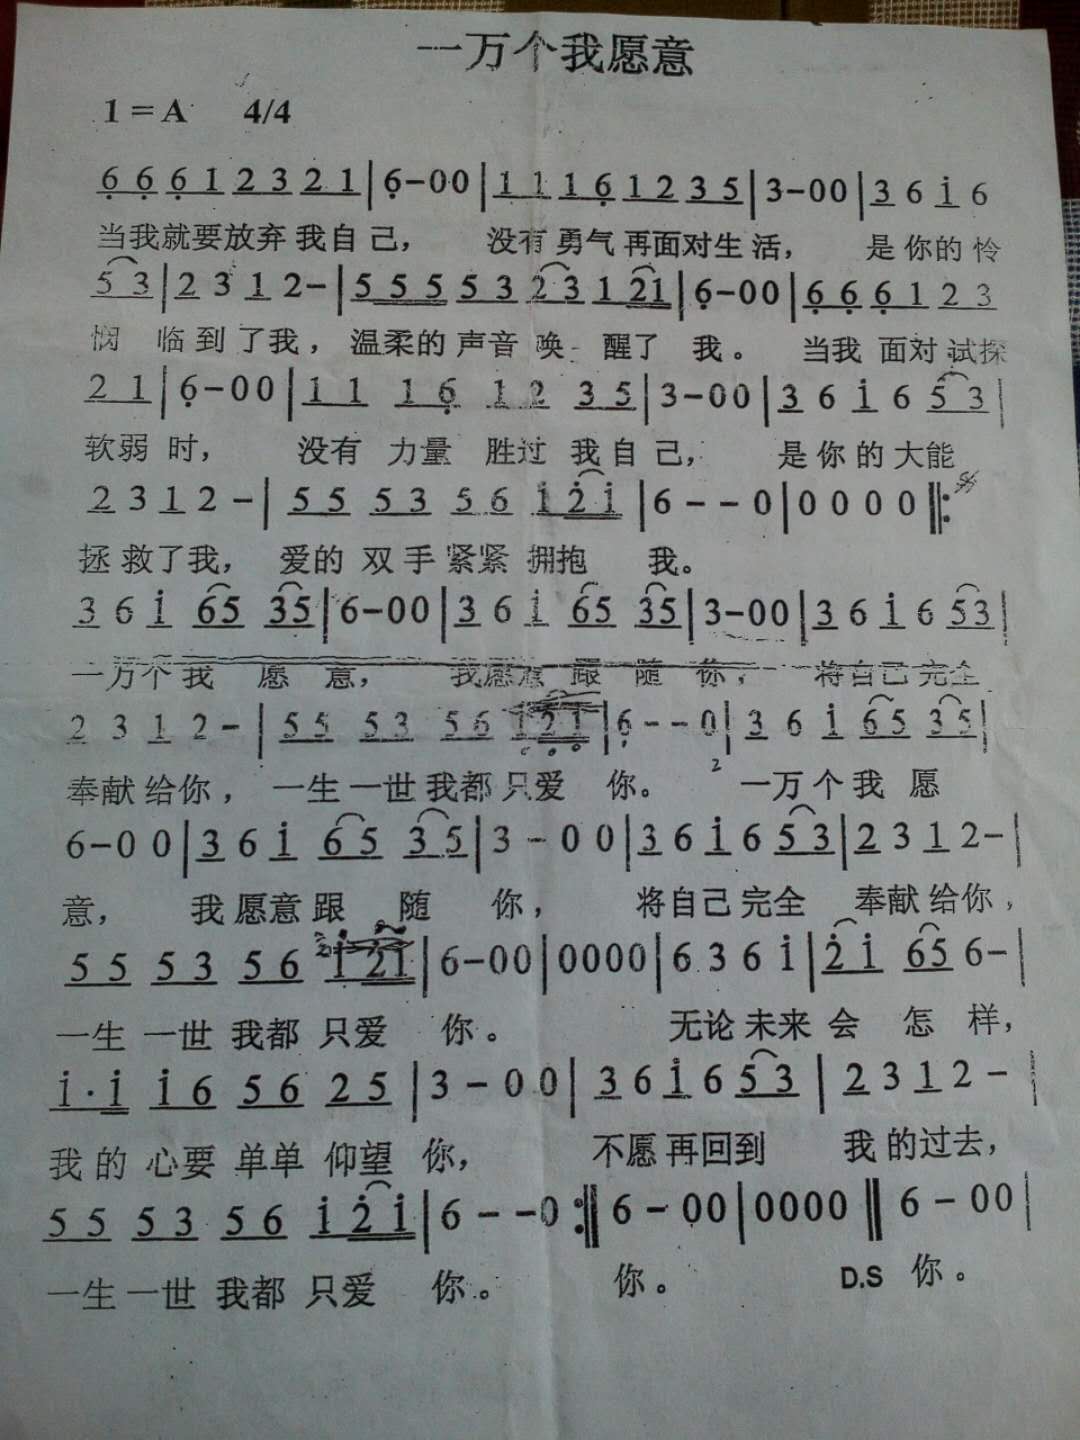 一万个我愿意
1=A 4/4
6 6 6 1 2 3 2 1|6-00|1 1 1 6 1 2 3 5|3-00|3 6 i 6
当我就要放弃 我自己， 没有 勇气 再面对生活， 是你的怜
5 3|2 3 1 2-|5 5 5 5 3 2 3 1 21|6-00|6 6 6 1 2 3
悯 临到了我， 温柔的 声音 唤 醒了 我。 当我 面对 试探
2 1|6-00|1 1 1 6 1 2 3 5|3-00|3 6 i 6 5 3|
软弱 时， 没有 力量 胜过 我自己， 是你的大能
2 3 1 2-|5 5 5 3 5 6 i 2 i|6--0|0000‖:
拯救了我， 爱的 双手 紧紧 拥抱 我。
3 6 i 65 35|6-00|3 6 i 65 35|3-00|3 6 i 6 53|
一万个我 愿 意， 我愿意 跟 随 你， 将自己完全
2 3 1 2-|5 5 5 3 5 6 i 2 i|6--0|3 6 i 65 35|
奉献给你， 一生一世我都只爱 你。 一万个我 愿
6-00|3 6 i 65 35|3-00|3 6 i 6 5 3|2 3 1 2-|
意， 我愿意跟 随 你， 将自己完全 奉献给你，
5 5 5 3 5 6 i 2 i|6-00|0000|6 3 6 i|2 i 65 6-|
一生 一世 我都 只爱 你。 无论 未来 会 怎 样，
i·i i 6 5 6 2 5|3-00|3 6 i 6 5 3|2 3 1 2-|
我的 心要 单单 仰望 你， 不愿再回到 我的过去，
5 5 5 3 5 6 i 2 i|6--0:‖6-00|0000‖6-00|
一生一世 我都 只爱 你。 你。 D.S 你。